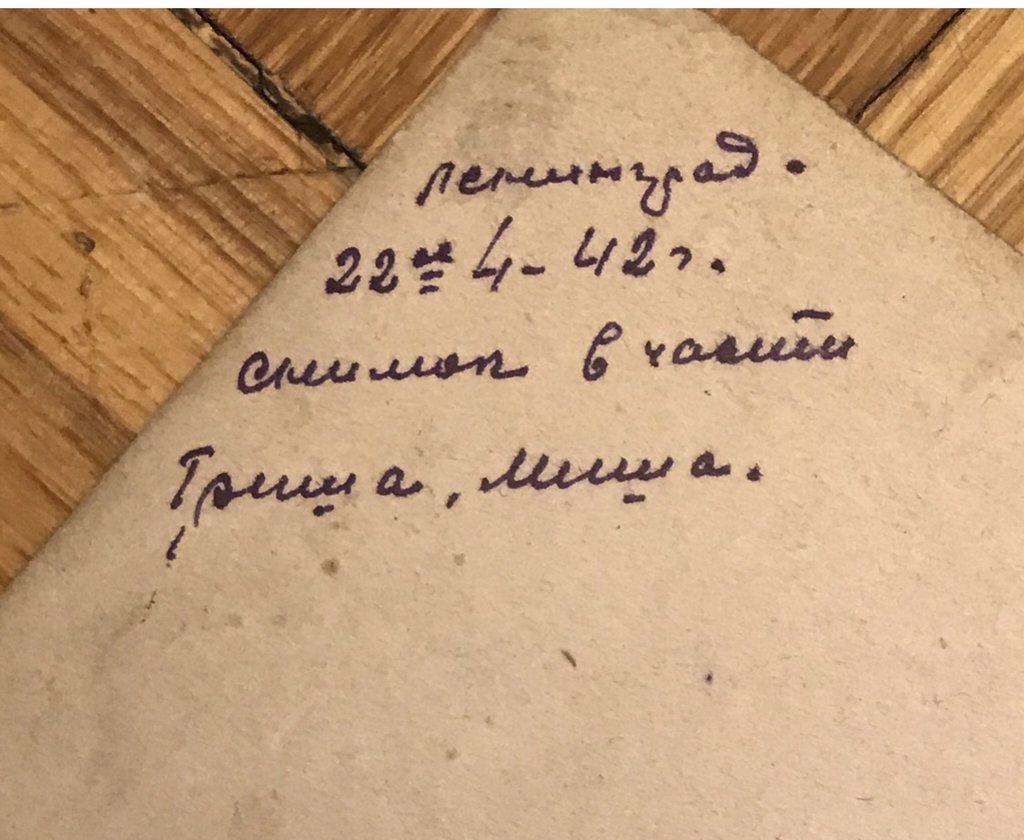 Ленинград.
22го 4-42г.
снимок в части
Гриша, Миша.